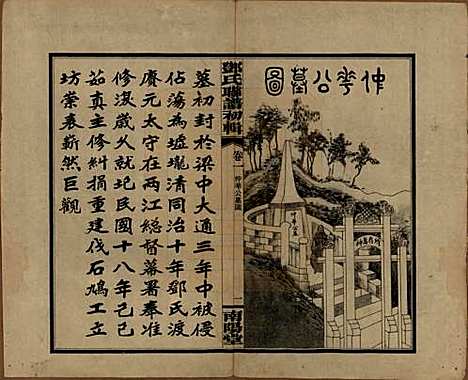 仲華公墓圖
鄧氏聯譜初輯
卷一
仲華公墓圖
南陽堂
墓初封於梁中大通三年中被侵
佔蕩為墟壠清同治十年鄧氏渡
賡元太守在兩江總督幕署奉准
修復歲久就圮民國十八年己巳
茹真主修糾捐重建伐石鳩工立
坊崇表嶄然巨觀